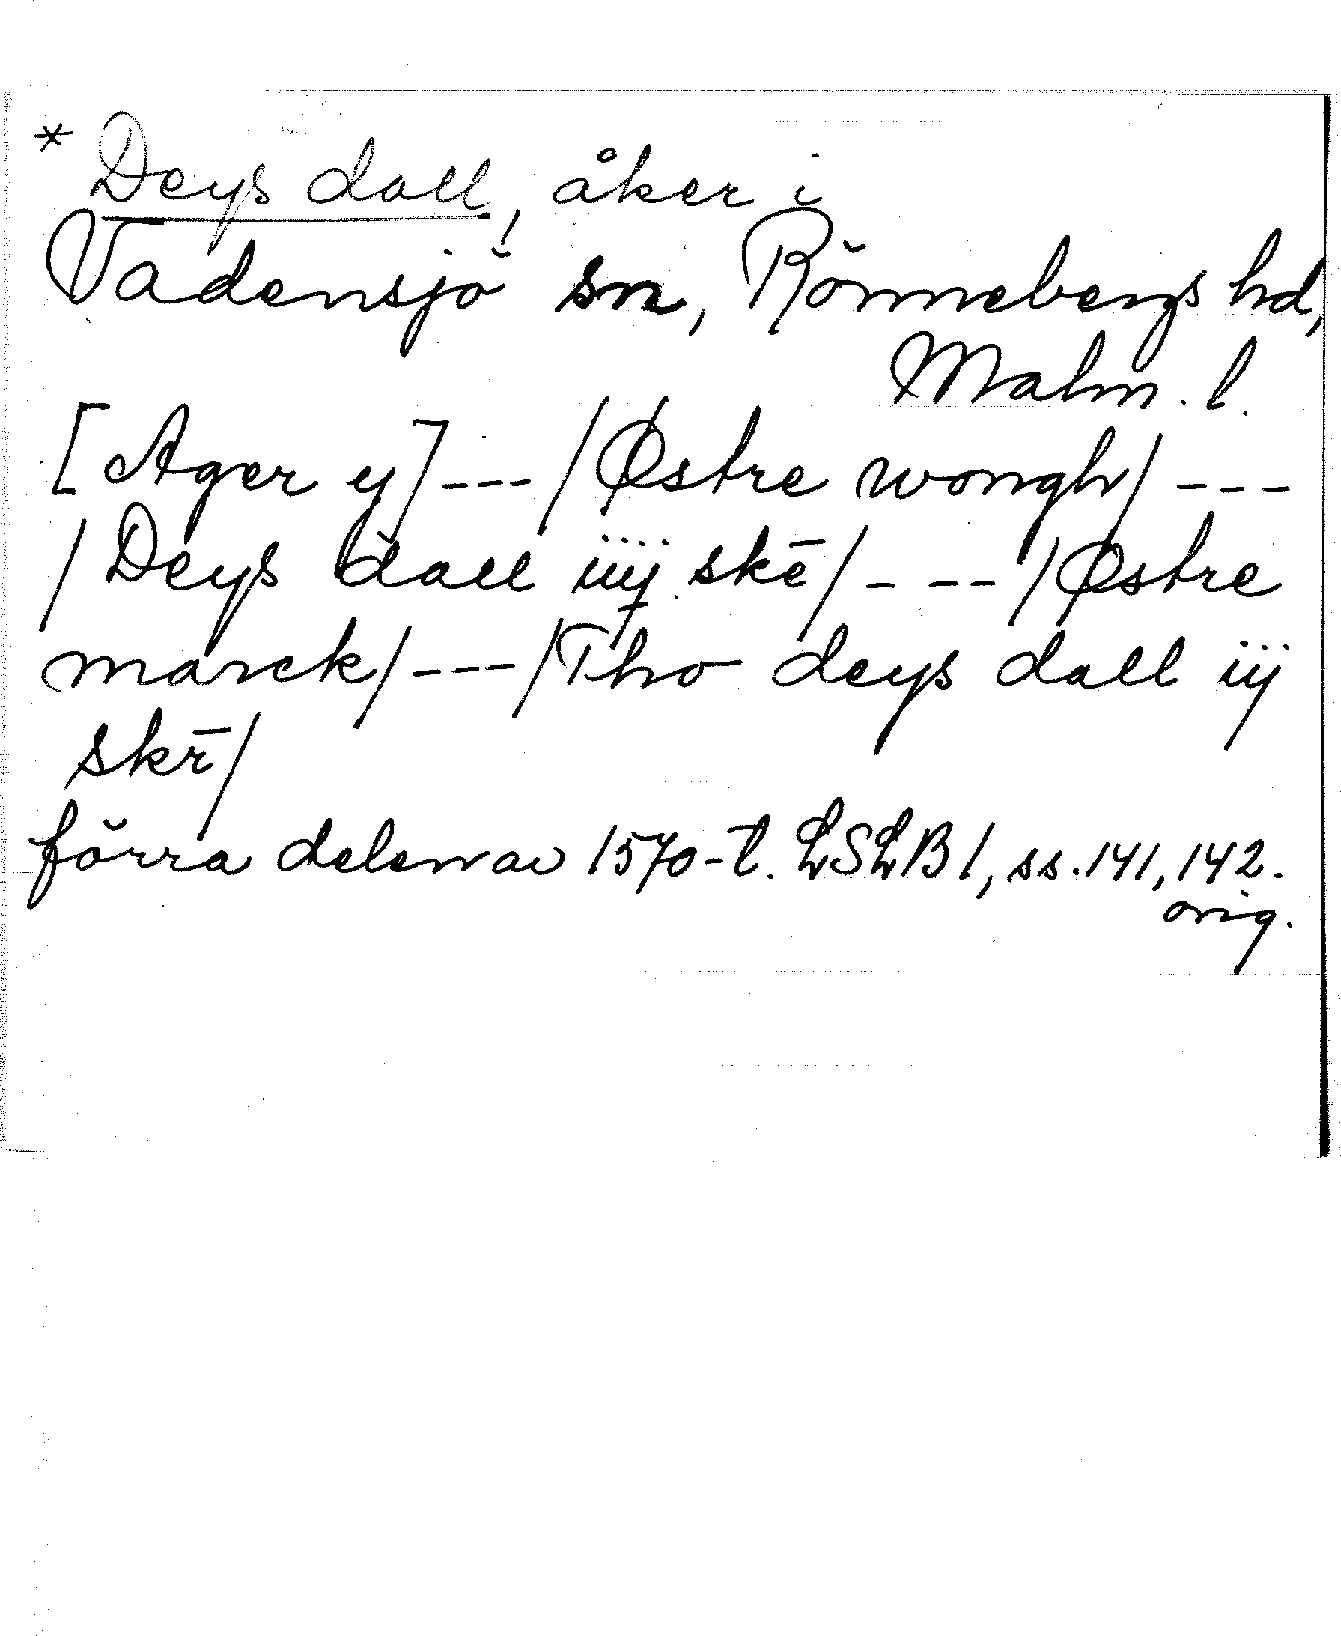 * Deys dall, åker i
Vadensjö sn, Rönnebergs hd,
Malm. l.
[Ager y] --- /Østre wongh/ ---
/Deys dall iiij skē/ - -- /Østre
marck/ --- /Tho deys dall iij
skr̄/
förra delen av 1570-t. LSLB 1, ss. 141, 142.
orig.